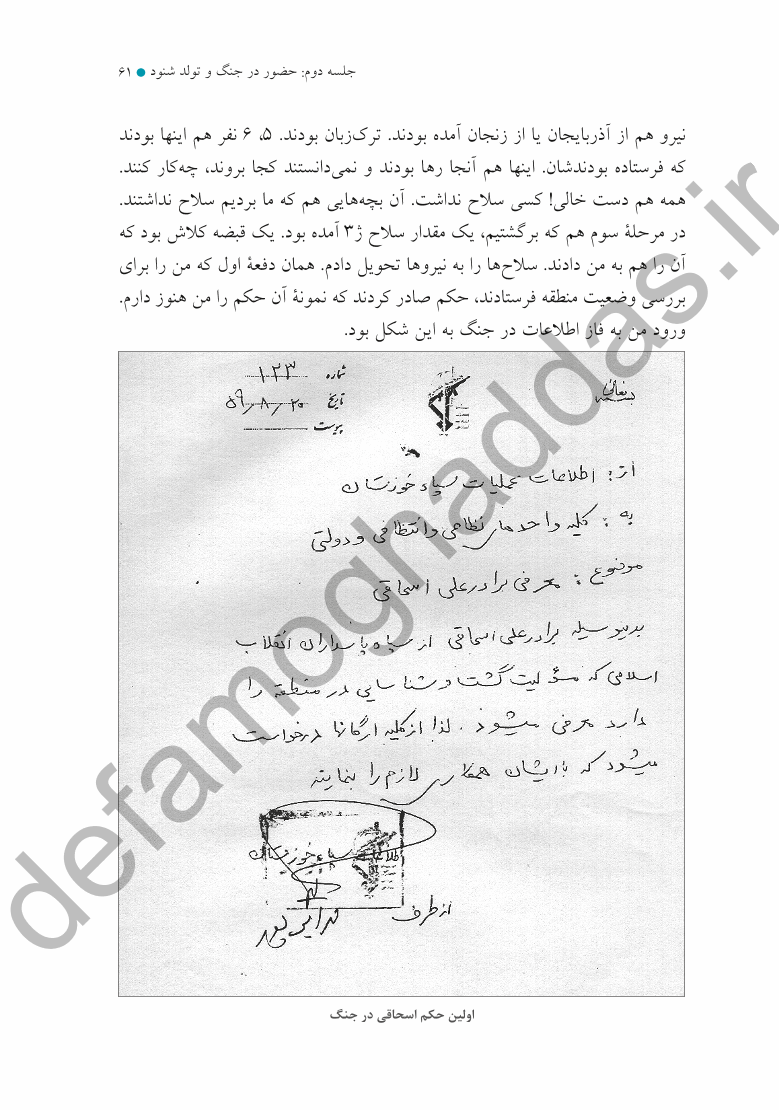 جلسه دوم: حضور در جنگ و تولد شنود ● ۶۱
نیرو هم از آذربایجان یا از زنجان آمده بودند. ترک‌زبان بودند. ۵، ۶ نفر هم اینها بودند
که فرستاده بودندشان. اینها هم آنجا رها بودند و نمی‌دانستند کجا بروند، چه‌کار کنند.
همه هم دست خالی! کسی سلاح نداشت. آن بچه‌هایی هم که ما بردیم سلاح نداشتند.
در مرحلهٔ سوم هم که برگشتیم، یک مقدار سلاح ژ۳ آمده بود. یک قبضه کلاش بود که
آن را هم به من دادند. سلاح‌ها را به نیروها تحویل دادم. همان دفعهٔ اول که من را برای
بررسی وضعیت منطقه فرستادند، حکم صادر کردند که نمونهٔ آن حکم را من هنوز دارم.
ورود من به فاز اطلاعات در جنگ به این شکل بود.
بسمه تعالی
شماره ۱۲۳
تاریخ ۵۹/۸/۲۰
پیوست
از: اطلاعات عملیات سپاه خوزستان
به: کلیه واحدهای نظامی و انتظامی و دولتی
موضوع: معرفی برادر علی اسحاقی
بدینوسیله برادر علی اسحاقی از سپاه پاسداران انقلاب
اسلامی که مسئولیت گشت و شناسایی در منطقه را
دارد معرفی میشود. لذا از کلیه ارگانها درخواست
میشود که با ایشان همکاری لازم را بنمایند
اطلاعات سپاه خوزستان
از طرف
اولین حکم اسحاقی در جنگ
defamoghaddas.ir